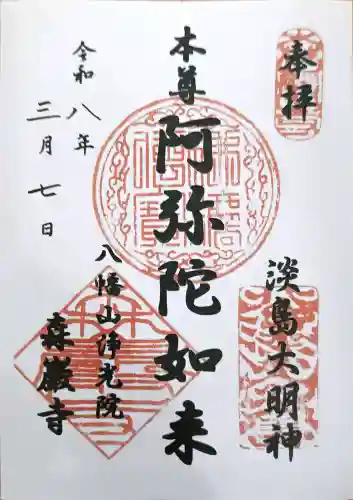 奉拝
淡島大明神
本尊
阿弥陀如来
八幡山浄光院
森巌寺
令和八年
三月七日